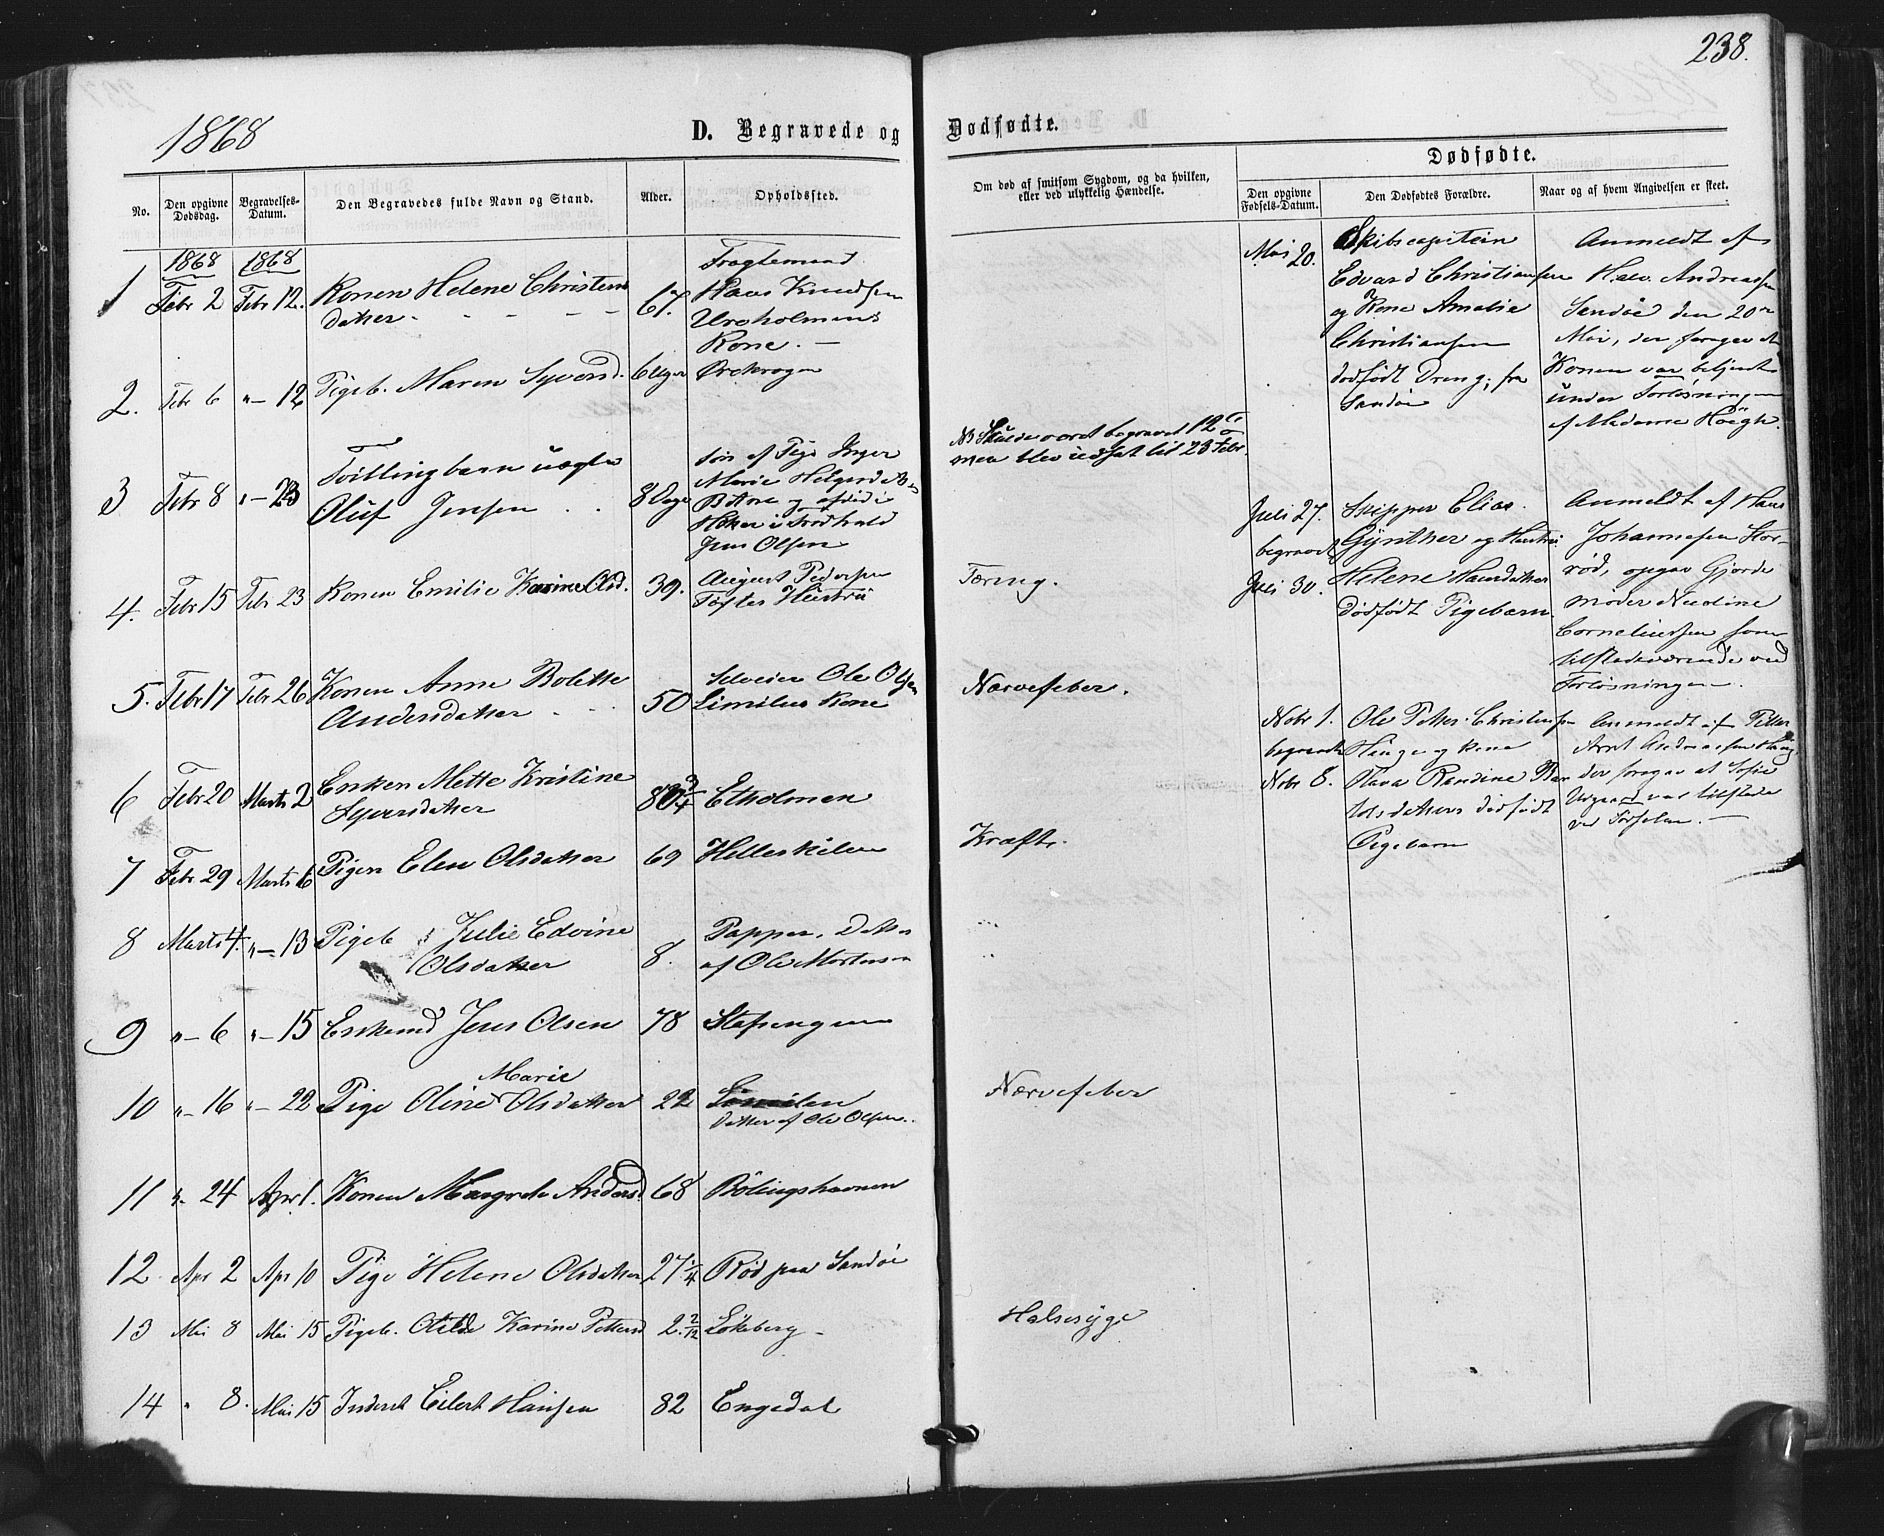 238.
1868
D. Begravede og Dødfødte.
No.
Den opgivne Dødsdag.
Begravelses-Datum.
Den Begravedes fulde Navn og Stand.
Alder.
Opholdssted.
Om død af smitsom Sygdom, og da hvilken,
eller ved ulykkelig Hændelse.
Dødfødte.
Den opgivne Fødsels-Datum.
Den Dødfødtes Forældre.
Naar og af hvem Angivelsen er skeet.
1868 1868
1 Febr 2 Febr 12. Konen Helene Christens
datter - - - - 67.
Hans Knudsen
Kone. -
2. Febr 6 "- 12 Pigeb. Maren Syversd. 6 Uger
3 Febr 8 "- 23 Tvillingbarn uægte
Oluf Jensen . . 8 Dage
Søn af Pige Inger
Marie
Jens Olsen
NB Skulde været begravet 12te
men blev udsat til 23 Febr.
4. Febr 15 Febr 23 Konen Emilie Karine Olsd. 39. August Pedersen
Hustru
Tæring.
5. Febr 17 Febr 26 Konen Anne Bolette
Andersdatter - - - 50
Ole Olsen
Kone
Nærvefeber.
6 Febr 20 Marts 2 Enken Mette Kristine
Syversdatter 80 3/4 Etholmen
7 Febr 29 Marts 6 Pigen Elen Olsdatter 69 Helleskilen
Kræft.
8 Marts 4. "- 13 Pigeb Julie Edvine
Olsdatter 8. Papper, Datter
af Ole Mortensen
9 "- 6 "- 15 Enkemd Jens Olsen 78
10 "- 16 "- 22 Pige Oline Marie Olsdatter 22
Datter af Ole Olsen..
Nærvefeber
11 " 24 Apr 1. Konen Margrete Andersd 68 Bölingshavnen
12 Apr 2 Apr 10 Pige Helene Olsdatter 27 1/4 Röd paa Sandöe
13 Mai 8 Mai 15 Pigeb. Otilde Karine Pettersd 2 2/12 Lökeberg -
Halssyge
14 " 8. Mai 15 Inderst Eilert Hansen 82 Engedal
Mai 20.
Skibscapitein
Edvard Christiansen
og Kone Amalie
Christiansen
dødfödt Dreng, fra
Sandöe
Anmeldt af
Halv. Andreassen
Sandöe den 20de
Mai, der foregav at
Konen var betjent
under Forløsningen
af Madame Höegh.
Juli 27.
begravet
Juli 30.
Skipper Elias
Gÿnther og Hustru
Helene Hansdatter
dödfödt Pigebarn
Anmeldt af Hans
Johannesen Stor-
röd, opgav Gjorde
moder
Corneliussen som
tilstedeværende ved
Forløsningen.
Nobr 1.
begravet
Nobr 8.
Ole Petter Christensen
og Kone
Randine
datters dödfödt
Pigebarn
Anmeldt af Petter
der foregav at Sofie
var tilstede
ved Födselen. -